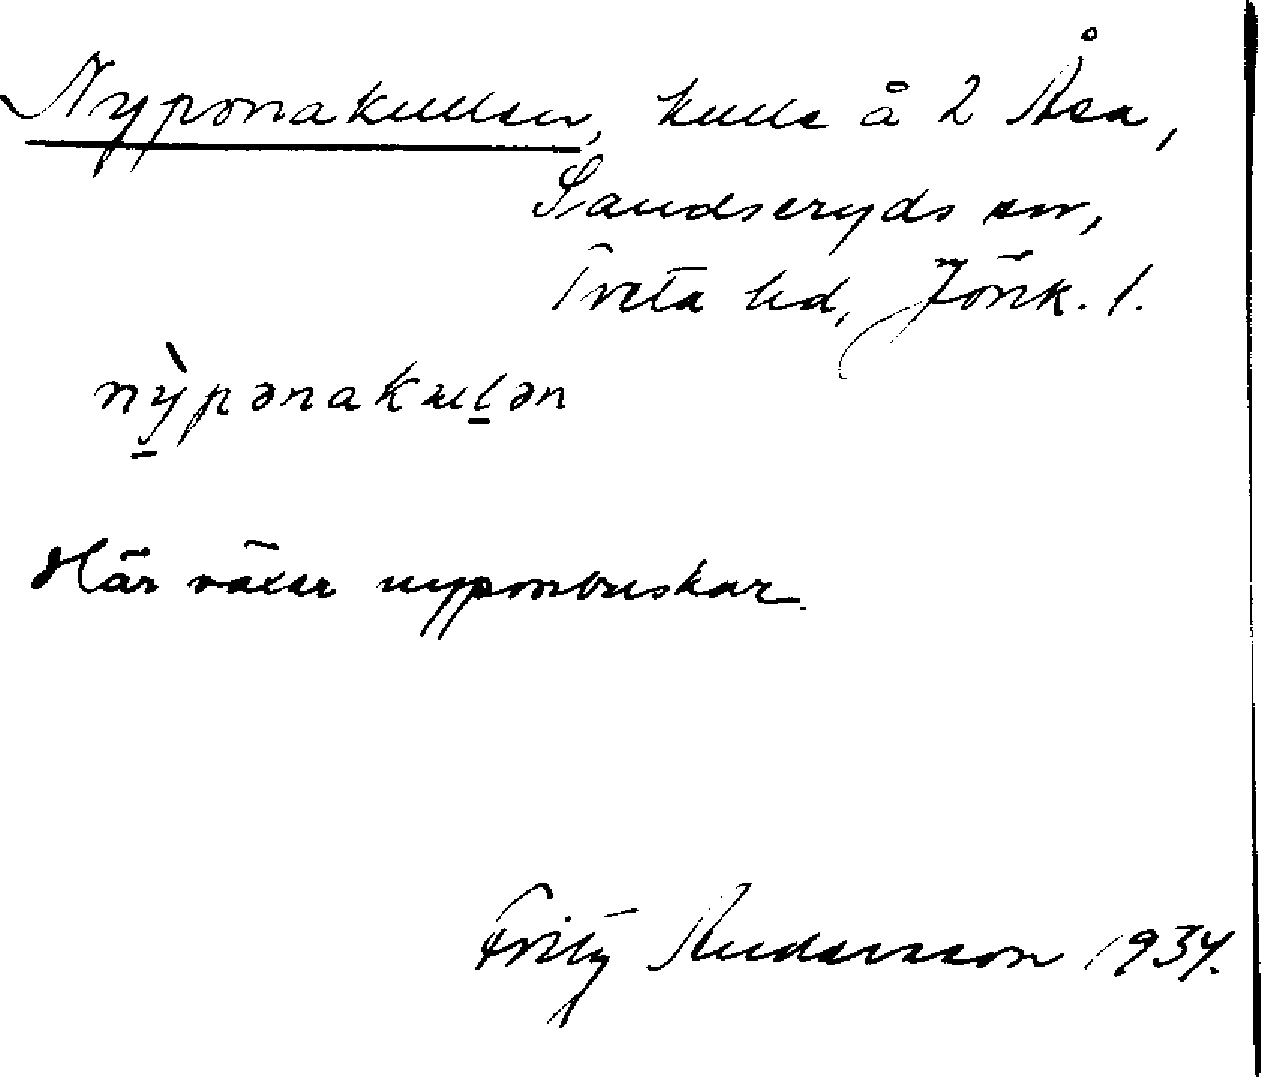 Nyponakullen, kulle å 2 Åsa,
Sandseryds sn,
Tveta hd, Jönk. l.
nỳpənakulən
Här växer nyponbuskar.
Fritz Andersson 1934.